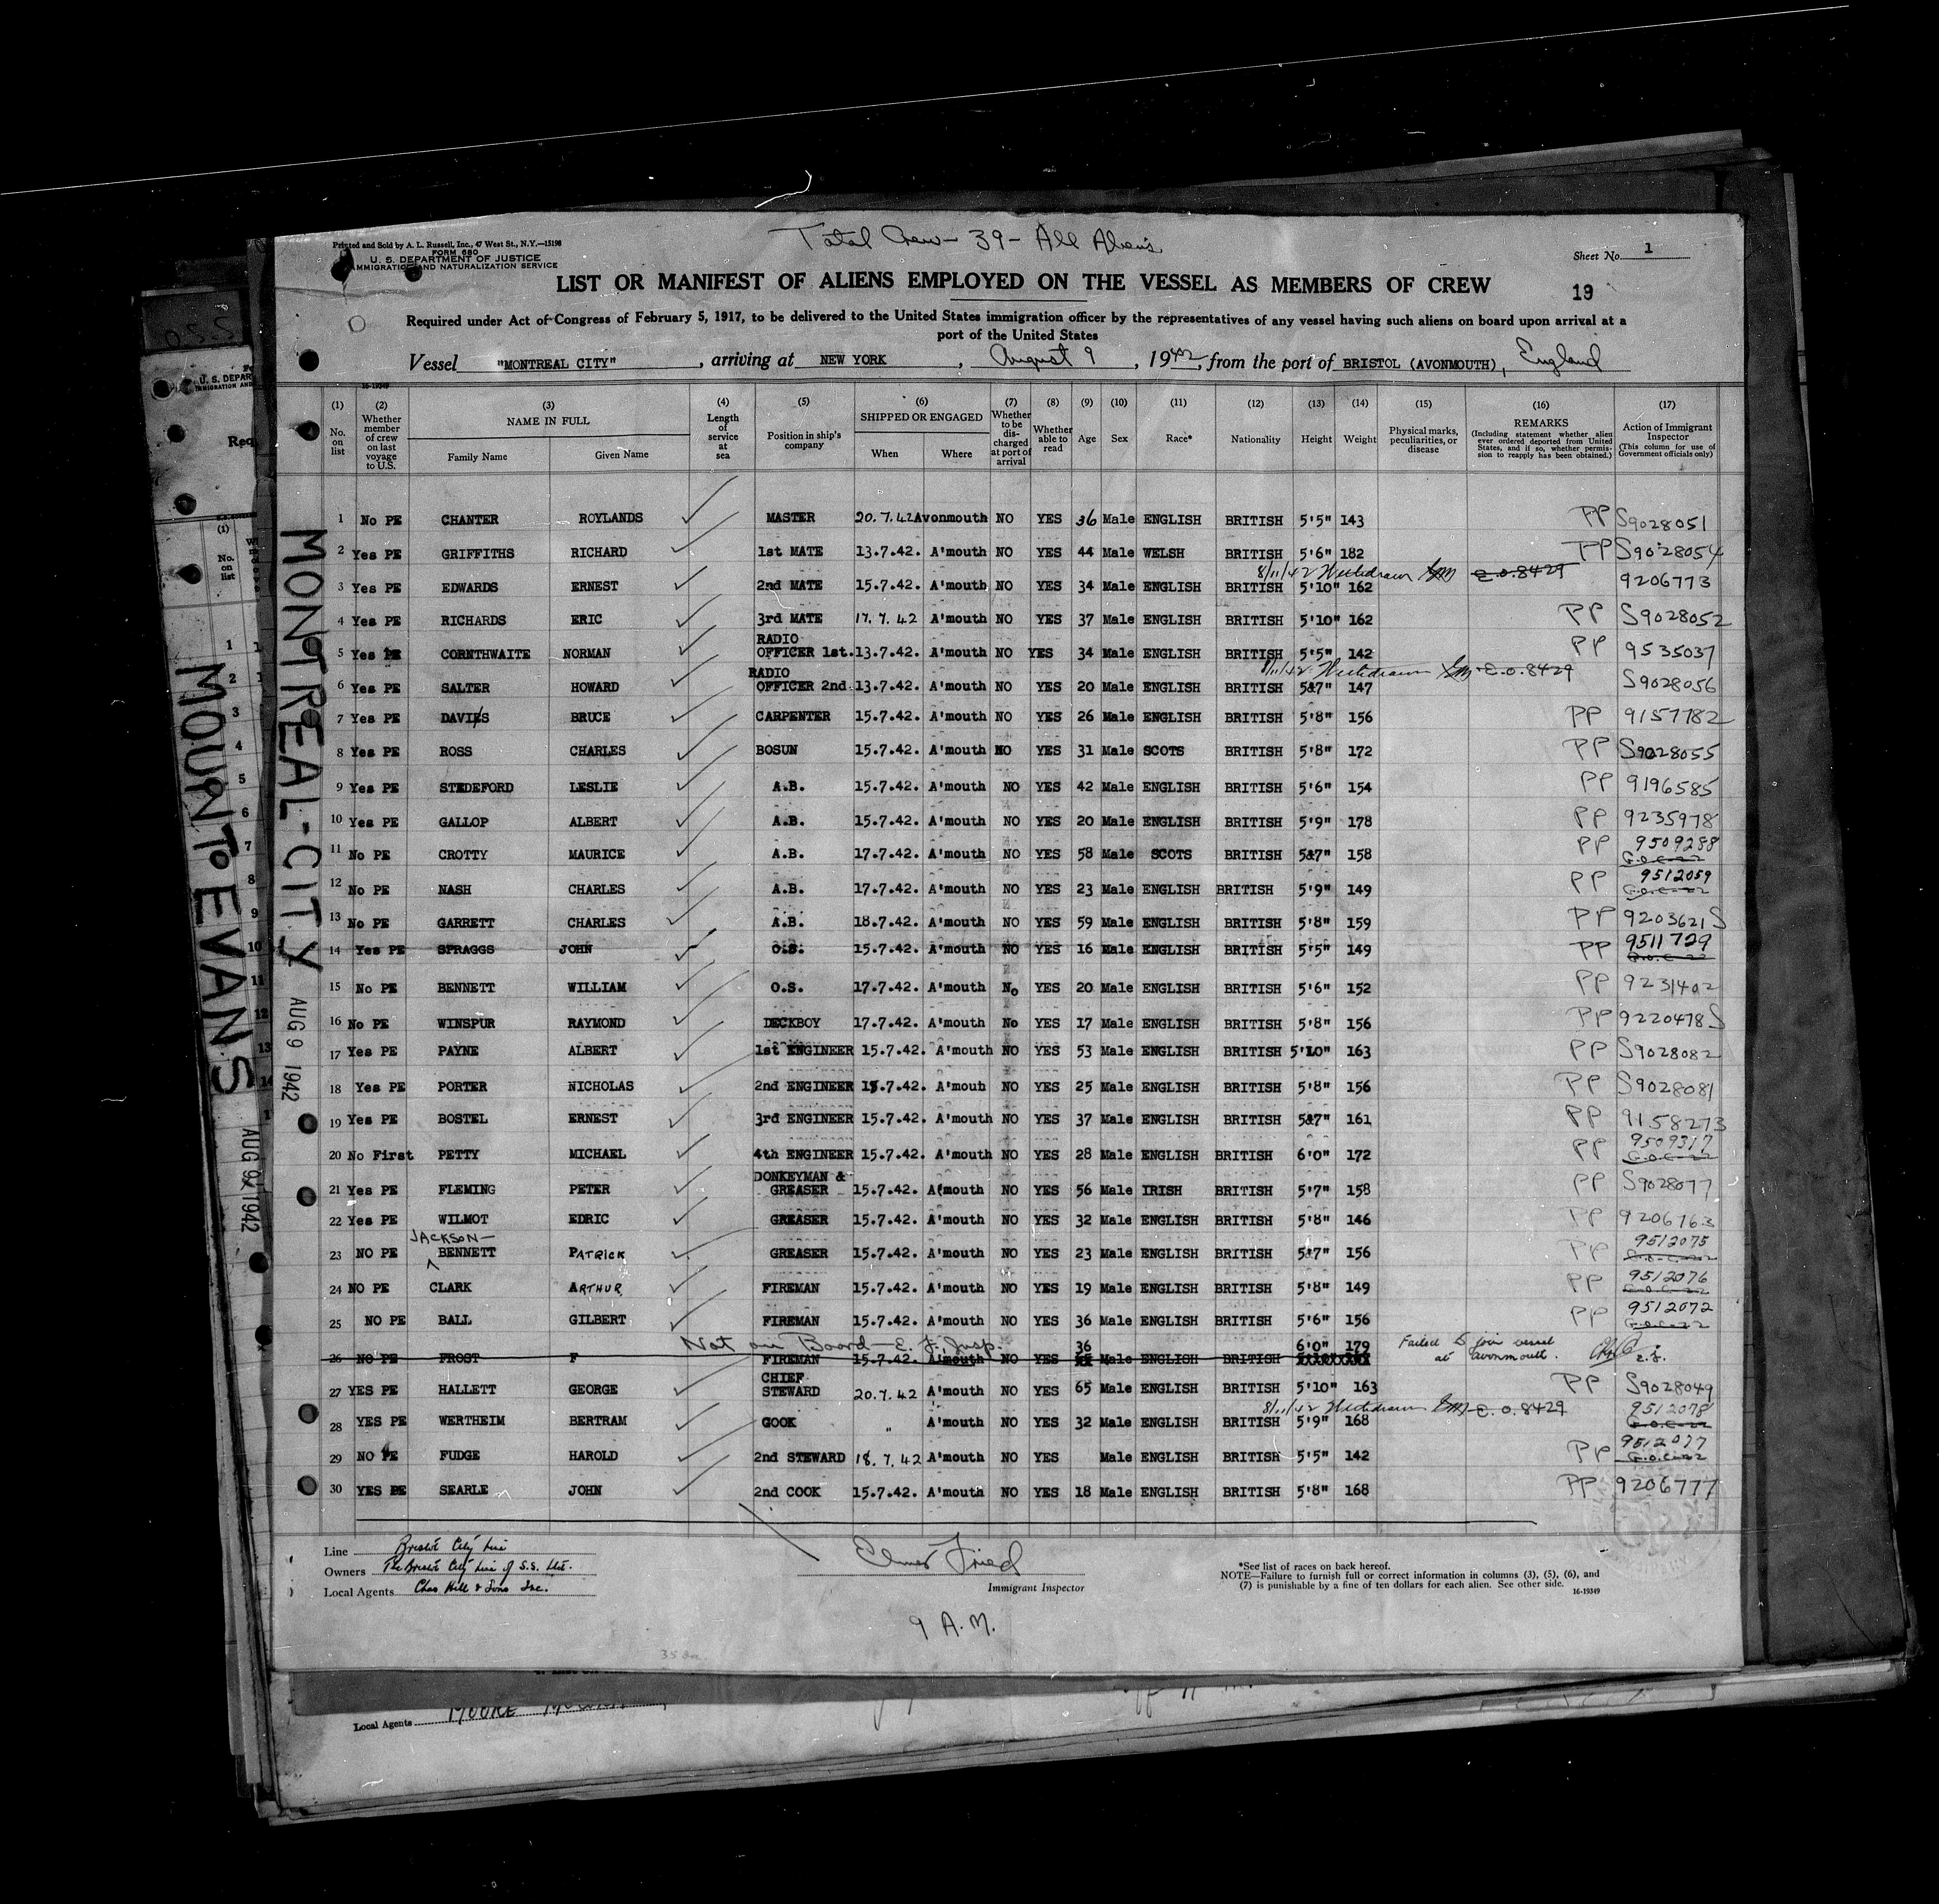 Total Crew - 39 - All Aliens
Printed and Sold by A. L. Russell, Inc., 47 West St., N.Y.—15198
FORM 680
U. S. DEPARTMENT OF JUSTICE
IMMIGRATION AND NATURALIZATION SERVICE
Sheet No. 1
LIST OR MANIFEST OF ALIENS EMPLOYED ON THE VESSEL AS MEMBERS OF CREW
19
Required under Act of Congress of February 5, 1917, to be delivered to the United States immigration officer by the representatives of any vessel having such aliens on board upon arrival at a
port of the United States
Vessel "MONTREAL CITY", arriving at NEW YORK, August 9, 1942, from the port of BRISTOL (AVONMOUTH), England
16-19349
(1) No. on list
(2) Whether member of crew on last voyage to U.S.
(3) NAME IN FULL Family Name Given Name
(4) Length of service at sea
(5) Position in ship's company
(6) SHIPPED OR ENGAGED When Where
(7) Whether to be discharged at port of arrival
(8) Whether able to read
(9) Age
(10) Sex
(11) Race*
(12) Nationality
(13) Height
(14) Weight
(15) Physical marks, peculiarities, or disease
(16) REMARKS (Including statement whether alien ever ordered deported from United States, and if so, whether permission to reapply has been obtained.)
(17) Action of Immigrant Inspector (This column for use of Government officials only)
1 No PE CHANTER ROYLANDS MASTER 20.7.42 Avonmouth NO YES 36 Male ENGLISH BRITISH 5'5" 143 PP S9028051
2 Yes PE GRIFFITHS RICHARD 1st MATE 13.7.42. A'mouth NO YES 44 Male WELSH BRITISH 5'6" 182 PP S9028054
8/11/42 Withdrawn E.O. 8429
3 Yes PE EDWARDS ERNEST 2nd MATE 15.7.42. A'mouth NO YES 34 Male ENGLISH BRITISH 5'10" 162 9206773
4 Yes PE RICHARDS ERIC 3rd MATE 17.7.42 A'mouth NO YES 37 Male ENGLISH BRITISH 5'10" 162 PP S9028052
5 Yes PE CORNTHWAITE NORMAN RADIO OFFICER 1st. 13.7.42. A'mouth NO YES 34 Male ENGLISH BRITISH 5'5" 142 PP 9535037
8/11/42 Withdrawn E.O. 8429
6 Yes PE SALTER HOWARD RADIO OFFICER 2nd. 13.7.42. A'mouth NO YES 20 Male ENGLISH BRITISH 5&7" 147 S9028056
7 Yes PE DAVIES BRUCE CARPENTER 15.7.42. A'mouth NO YES 26 Male ENGLISH BRITISH 5'8" 156 PP 9157782
8 Yes PE ROSS CHARLES BOSUN 15.7.42. A'mouth NO YES 31 Male SCOTS BRITISH 5'8" 172 PP S9028055
9 Yes PE STEDEFORD LESLIE A.B. 15.7.42. A'mouth NO YES 42 Male ENGLISH BRITISH 5'6" 154 PP 9196585
10 Yes PE GALLOP ALBERT A.B. 15.7.42. A'mouth NO YES 20 Male ENGLISH BRITISH 5'9" 178 PP 9235978
11 No PE CROTTY MAURICE A.B. 17.7.42. A'mouth NO YES 58 Male SCOTS BRITISH 5&7" 158 PP 9509288
12 No PE NASH CHARLES A.B. 17.7.42. A'mouth NO YES 23 Male ENGLISH BRITISH 5'9" 149 PP 9512059
13 No PE GARRETT CHARLES A.B. 18.7.42. A'mouth NO YES 59 Male ENGLISH BRITISH 5'8" 159 PP 9203621 S
14 Yes PE SPRAGGS JOHN O.S. 15.7.42. A'mouth NO YES 16 Male ENGLISH BRITISH 5'5" 149 PP 9511729
15 No PE BENNETT WILLIAM O.S. 17.7.42. A'mouth No YES 20 Male ENGLISH BRITISH 5'6" 152 PP 9231402
16 No PE WINSPUR RAYMOND DECKBOY 17.7.42. A'mouth No YES 17 Male ENGLISH BRITISH 5'8" 156 PP 9220478 S
17 Yes PE PAYNE ALBERT 1st ENGINEER 15.7.42. A'mouth NO YES 53 Male ENGLISH BRITISH 5'10" 163 PP S9028082
18 Yes PE PORTER NICHOLAS 2nd ENGINEER 15.7.42. A'mouh NO YES 25 Male ENGLISH BRITISH 5'8" 156 PP S9028081
19 Yes PE BOSTEL ERNEST 3rd ENGINEER 15.7.42. A'mouth NO YES 37 Male ENGLISH BRITISH 5&7" 161 PP 9158273
20 No First PETTY MICHAEL 4th ENGINEER 15.7.42. A'mouth NO YES 28 Male ENGLISH BRITISH 6'0" 172 PP 9509317
21 Yes PE FLEMING PETER DONKEYMAN & GREASER 15.7.42. A'mouth NO YES 56 Male IRISH BRITISH 5'7" 158 PP S9028077
22 Yes PE WILMOT EDRIC GREASER 15.7.42. A'mouth NO YES 32 Male ENGLISH BRITISH 5'8" 146 PP 9206763
23 NO PE JACKSON- BENNETT PATRICK GREASER 15.7.42. A'mouth NO YES 23 Male ENGLISH BRITISH 5&7" 156 PP 9512075
24 NO PE CLARK ARTHUR FIREMAN 15.7.42. A'mouth NO YES 19 Male ENGLISH BRITISH 5'8" 149 PP 9512076
25 NO PE BALL GILBERT FIREMAN 15.7.42. A'mouth NO YES 36 Male ENGLISH BRITISH 5'6" 156 PP 9512072
Not on Board - E. F., Insp.
26 NO PE FROST F FIREMAN 15.7.42. A'mouth NO YES 36 Male ENGLISH BRITISH 6'0" 179 Failed to join vessel at Avonmouth.
27 YES PE HALLETT GEORGE CHIEF STEWARD 20.7.42 A'mouth NO YES 65 Male ENGLISH BRITISH 5'10" 163 PP S9028049
8/11/42 Withdrawn E.O. 8429
28 YES PE WERTHEIM BERTRAM COOK " A'mouth NO YES 32 Male ENGLISH BRITISH 5'9" 168 9512078
29 NO PE FUDGE HAROLD 2nd STEWARD 18.7.42 A'mouth NO YES Male ENGLISH BRITISH 5'5" 142 PP 9512077
30 YES PE SEARLE JOHN 2nd COOK 15.7.42. A'mouth NO YES 18 Male ENGLISH BRITISH 5'8" 168 PP 9206777
Line Bristol City Line
Owners The Bristol City Line of S.S. Ltd.
Local Agents Chas Hill & Sons Inc.
Elmer Fried
Immigrant Inspector
*See list of races on back hereof.
NOTE—Failure to furnish full or correct information in columns (3), (5), (6), and
(7) is punishable by a fine of ten dollars for each alien. See other side.
16-19349
9 A.M.
MONTREAL-CITY
AUG 9 1942
MOUNT EVANS
AUG 9 1942
Local Agents MOORE